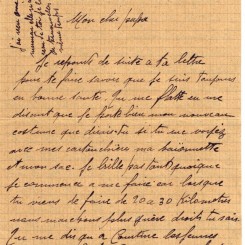 Mon cher papa
Je réponds de suite a ta lettre
pour te faire savoir que je suis toujours
en bonne santé. Tu me flatte en me
disant que je porte bien mon nouveau
costume que dirais tu si tu me voyais
avec mes cartouchières ma baionnette
et mon sac. Je brille pas tant quoique
je commence a me faire car lorsque
tu viens de faire de 20 a 30 Kilometres
nous marchons plus guère droits tu sais
Tu me dis qu a les jeunes